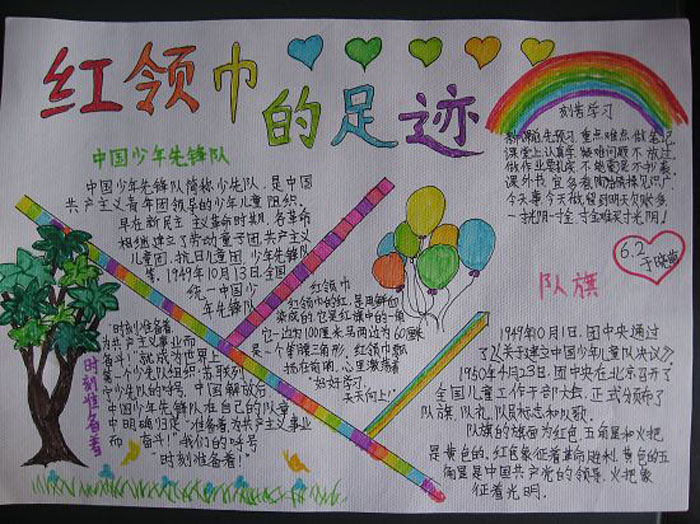 红领巾
的足迹
中国少年先锋队
中国少年先锋队简称少先队,是中国
共产主义青年团领导的少年儿童组织。
早在新民主主义革命时期,各革命
相继建立了劳动童子团、共产主义
儿童团、抗日儿童团、少年先锋队
等。1949年10月13日全国
统一中国少
年先锋队
红领巾
红领巾的红,是用鲜血
染成的,它是红旗中的一角
它一边为100厘米另两边为60厘米
是一个等腰三角形,红领巾飘
扬在前胸,心里激荡着
"好好学习,
天天向上!"
"时刻准备着,
为共产主义事业而
奋斗!"就成为世界上
第一个少先队组织:苏联列
宁少先队的呼号,中国解放后,
中国少年先锋队在自己的队章
中明确归定"准备着,为共产主义事业
而奋斗!"我们的呼号
"时刻准备着!"
时刻准备着
刻苦学习
新课前先预习,重点难点做笔记
课堂上认真学,疑难问题不放过。
做作业要扎实,不能
课外书,宜多看,识广。
今天事今天做,留到明天欠账多
一寸光阴一寸金,寸金难买寸光阴!
6.2
于晓
队旗
1949年10月1日,团中央通过
了《关于建立中国少年儿童队决议》。
1950年4月23日,团中央在北京召开了
全国儿童工作干部大会,正式颁布了
队旗、队礼、队员标志和队歌。
队旗的旗面为红色,五角星和火把
是黄色的,红色象征着革命胜利,黄色的五
角星是中国共产党的领导,火把象
征着光明。